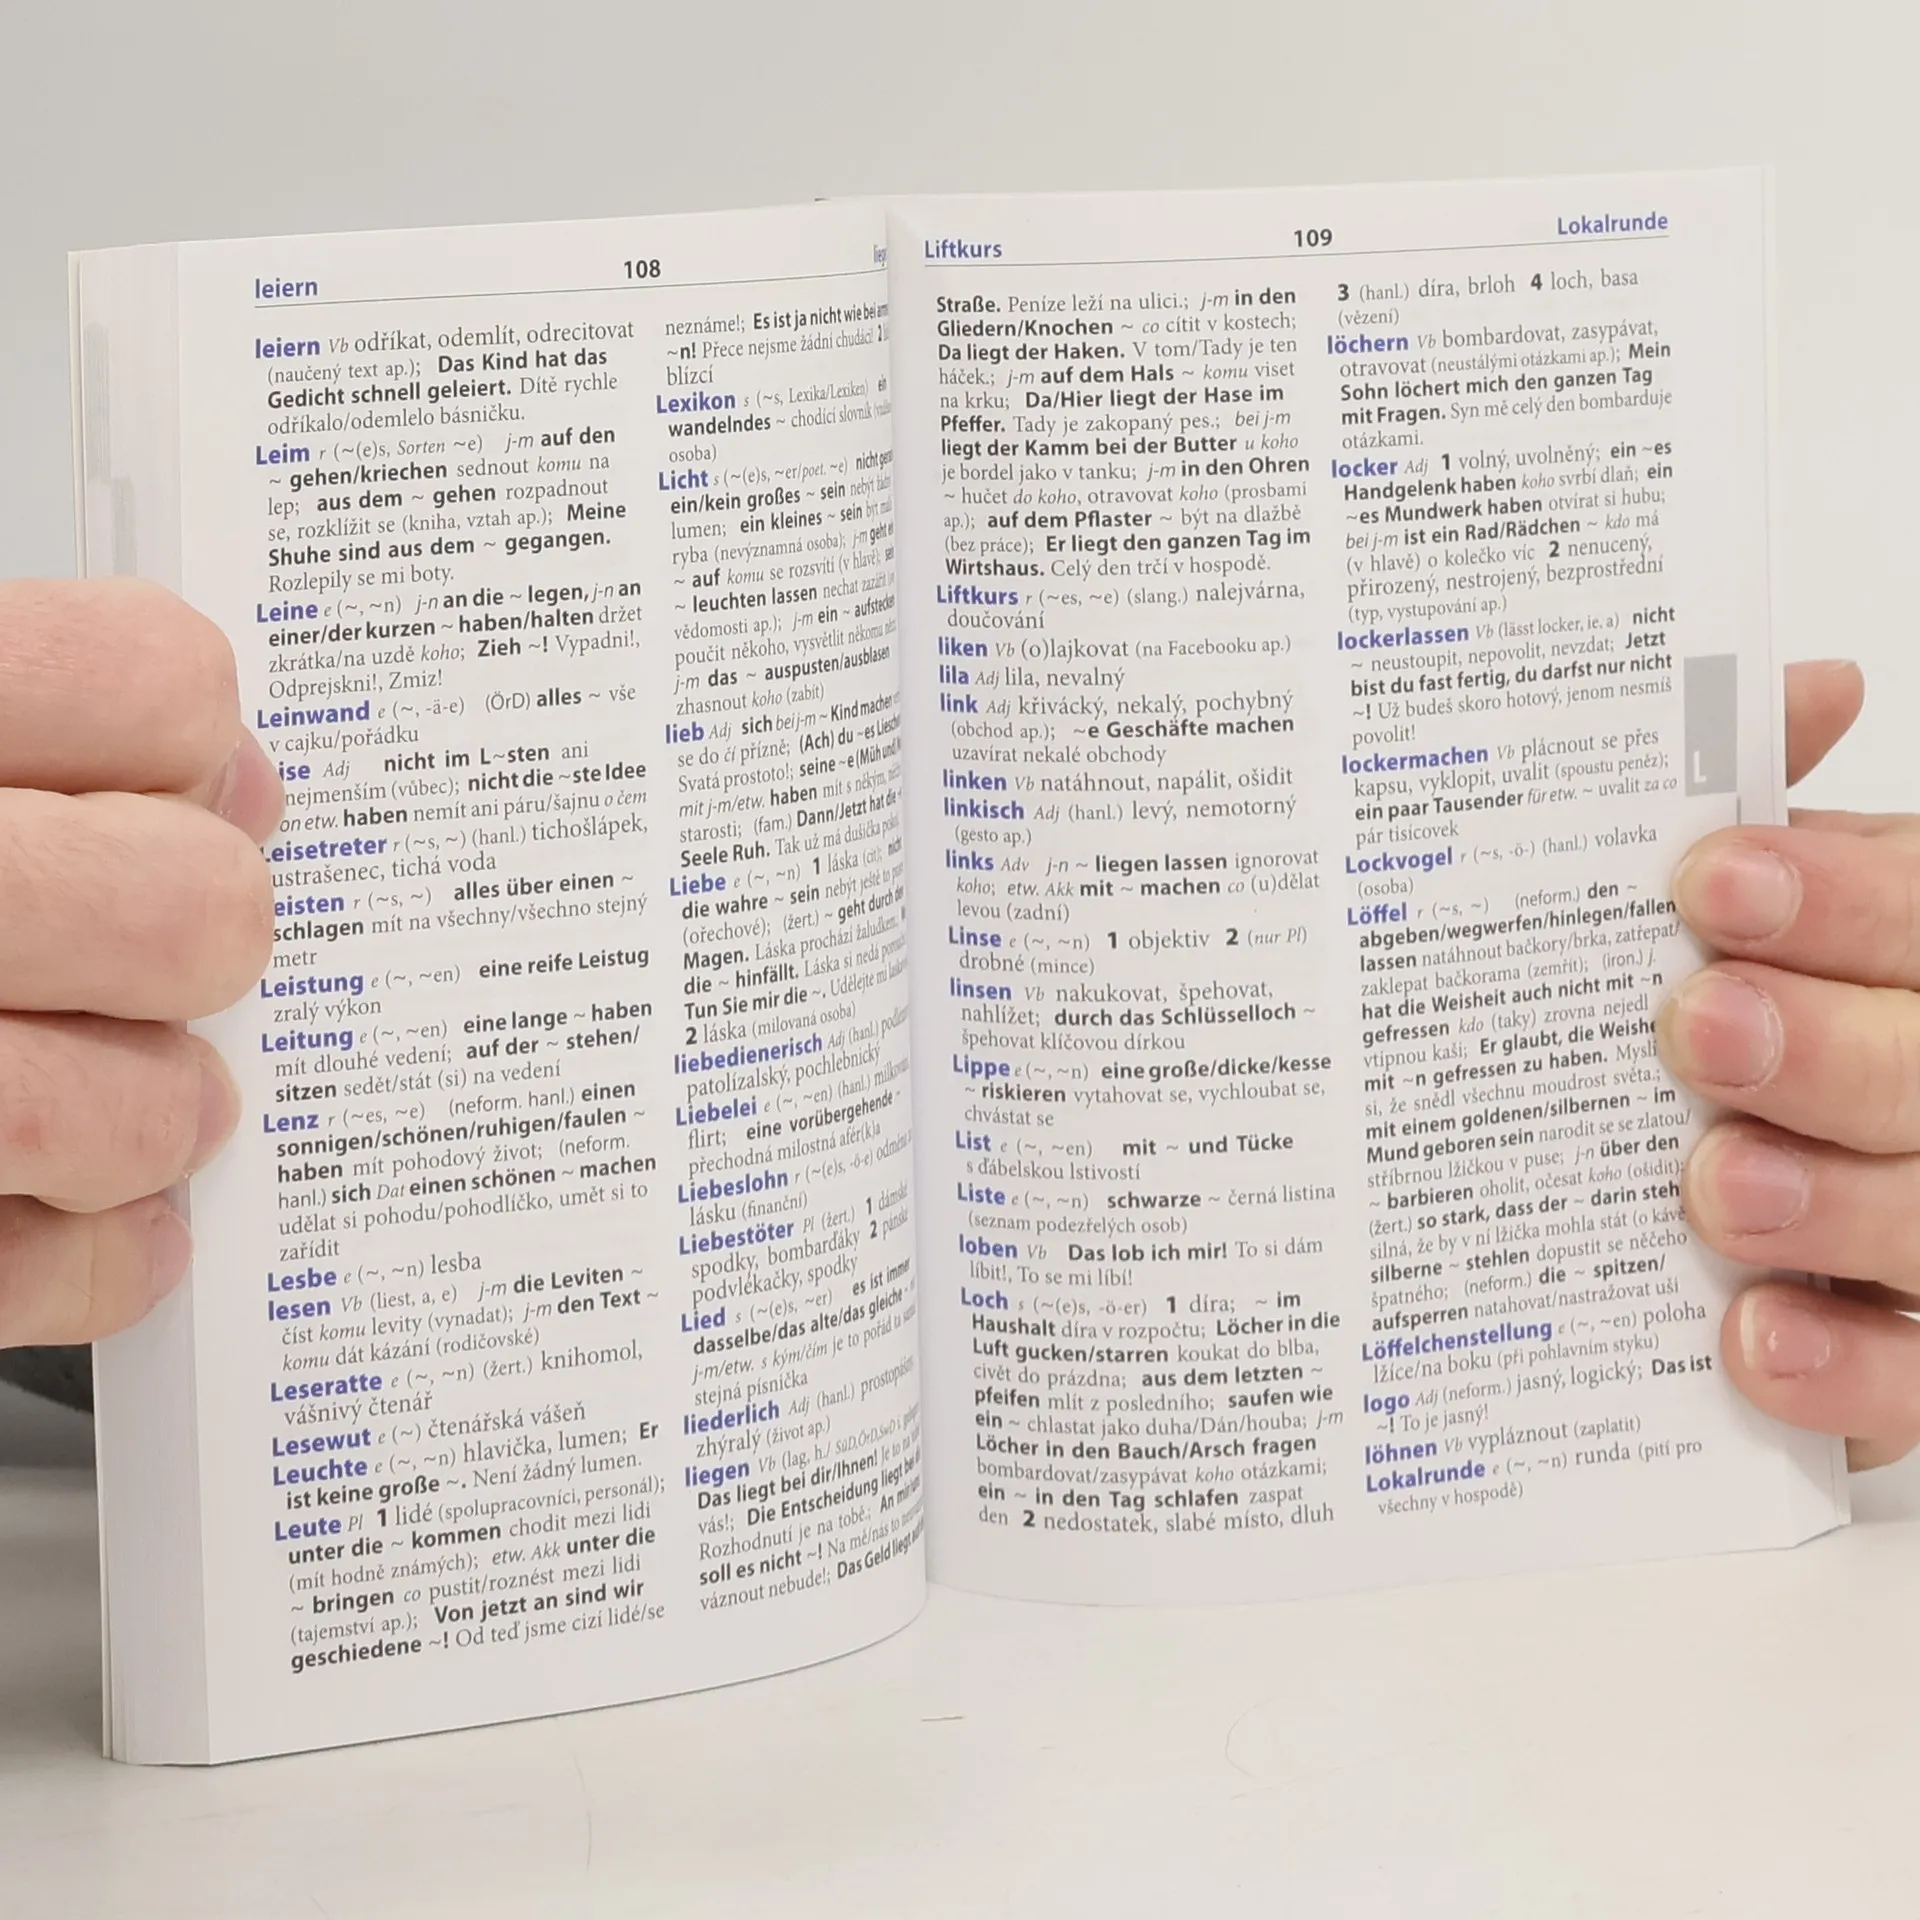 leiern
108
leiern Vb odříkat, odemlít, odrecitovat
(naučený text ap.); Das Kind hat das
Gedicht schnell geleiert. Dítě rychle
odříkalo/odemlelo básničku.
Leim r (~(e)s, Sorten ~e) j-m auf den
~ gehen/kriechen sednout komu na
lep; aus dem ~ gehen rozpadnout
se, rozklížit se (kniha, vztah ap.); Meine
Shuhe sind aus dem ~ gegangen.
Rozlepily se mi boty.
Leine e (~, ~n) j-n an die ~ legen, j-n an
einer/der kurzen ~ haben/halten držet
zkrátka/na uzdě koho; Zieh ~! Vypadni!,
Odprejskni!, Zmiz!
Leinwand e (~, -ä-e) (ÖrD) alles ~ vše
v cajku/pořádku
ise Adj nicht im L~sten ani
nejmenším (vůbec); nicht die ~ste Idee
on etw. haben nemít ani páru/šajnu o čem
eisetreter r (~s, ~) (hanl.) tichošlápek,
ustrašenec, tichá voda
eisten r (~s, ~) alles über einen ~
schlagen mít na všechny/všechno stejný
metr
Leistung e (~, ~en) eine reife Leistug
zralý výkon
Leitung e (~, ~en) eine lange ~ haben
mít dlouhé vedení; auf der ~ stehen/
sitzen sedět/stát (si) na vedení
Lenz r (~es, ~e) (neform. hanl.) einen
sonnigen/schönen/ruhigen/faulen ~
haben mít pohodový život; (neform.
hanl.) sich Dat einen schönen ~ machen
udělat si pohodu/pohodlíčko, umět si to
zařídit
Lesbe e (~, ~n) lesba
lesen Vb (liest, a, e) j-m die Leviten ~
číst komu levity (vynadat); j-m den Text ~
komu dát kázání (rodičovské)
Leseratte e (~, ~n) (žert.) knihomol,
vášnivý čtenář
Lesewut e (~) čtenářská vášeň
Leuchte e (~, ~n) hlavička, lumen; Er
ist keine große ~. Není žádný lumen.
Leute Pl 1 lidé (spolupracovníci, personál);
unter die ~ kommen chodit mezi lidi
(mít hodně známých); etw. Akk unter die
~ bringen co pustit/roznést mezi lidi
(tajemství ap.); Von jetzt an sind wir
geschiedene ~! Od teď jsme cizí lidé/se
neznáme!; Es ist ja nicht wie bei
~n! Přece nejsme žádní chudáci! 2
blízcí
Lexikon s (~s, Lexika/Lexiken) ein
wandelndes ~ chodící slovník
osoba)
Licht s (~(e)s, ~er/poet. ~e) nicht
ein/kein großes ~ sein nebýt
lumen; ein kleines ~ sein být
ryba (nevýznamná osoba); j-m geht
~ auf komu se rozsvítí (v hlavě);
~ leuchten lassen nechat zazářit
vědomosti ap.); j-m ein ~ aufstecken
poučit někoho, vysvětlit někomu
j-m das ~ auspusten/ausblasen
zhasnout koho (zabít)
lieb Adj sich bei j-m ~ Kind machen
se do čí přízně; (Ach) du ~es Lieschen
Svatá prostoto!; seine ~e (Müh und
mit j-m/etw. haben mít s někým,
starosti; (fam.) Dann/Jetzt hat die
Seele Ruh. Tak už má dušička
Liebe e (~, ~n) 1 láska (cit); nicht
die wahre ~ sein nebýt ještě to
(ořechové); (žert.) ~ geht durch den
Magen. Láska prochází žaludkem.
die ~ hinfällt. Láska si nedá
Tun Sie mir die ~. Udělejte mi
2 láska (milovaná osoba)
liebedienerisch Adj (hanl.)
patolízalský, pochlebnický
Liebelei e (~, ~en) (hanl.)
flirt; eine vorübergehende ~
přechodná milostná afér(k)a
Liebeslohn r (~(e)s, -ö-e) odměna
lásku (finanční)
Liebestöter Pl (žert.) 1 dámské
spodky, bombarďáky 2 pánské
podvlékačky, spodky
Lied s (~(e)s, ~er) es ist immer
dasselbe/das alte/das gleiche ~
j-m/etw. s kým/čím je to pořád ta
stejná písnička
liederlich Adj (hanl.)
zhýralý (život ap.)
liegen Vb (lag, h./ SüD,ÖrD,SwD i.
Das liegt bei dir/Ihnen! Je to na
vás!; Die Entscheidung liegt bei
Rozhodnutí je na tobě.; An
soll es nicht ~! Na mě/nás to
váznout nebude!; Das Geld liegt
Liftkurs
109
Lokalrunde
Straße. Peníze leží na ulici.; j-m in den
Gliedern/Knochen ~ co cítit v kostech;
Da liegt der Haken. V tom/Tady je ten
háček.; j-m auf dem Hals ~ komu viset
na krku; Da/Hier liegt der Hase im
Pfeffer. Tady je zakopaný pes.; bei j-m
liegt der Kamm bei der Butter u koho
je bordel jako v tanku; j-m in den Ohren
~ hučet do koho, otravovat koho (prosbami
ap.); auf dem Pflaster ~ být na dlažbě
(bez práce); Er liegt den ganzen Tag im
Wirtshaus. Celý den trčí v hospodě.
Liftkurs r (~es, ~e) (slang.) nalejvárna,
doučování
liken Vb (o)lajkovat (na Facebooku ap.)
lila Adj lila, nevalný
link Adj křivácký, nekalý, pochybný
(obchod ap.); ~e Geschäfte machen
uzavírat nekalé obchody
linken Vb natáhnout, napálit, ošidit
linkisch Adj (hanl.) levý, nemotorný
(gesto ap.)
links Adv j-n ~ liegen lassen ignorovat
koho; etw. Akk mit ~ machen co (u)dělat
levou (zadní)
Linse e (~, ~n) 1 objektiv 2 (nur Pl)
drobné (mince)
linsen Vb nakukovat, špehovat,
nahlížet; durch das Schlüsselloch ~
špehovat klíčovou dírkou
Lippe e (~, ~n) eine große/dicke/kesse
~ riskieren vytahovat se, vychloubat se,
chvástat se
List e (~, ~en) mit ~ und Tücke
s ďábelskou lstivostí
Liste e (~, ~n) schwarze ~ černá listina
(seznam podezřelých osob)
loben Vb Das lob ich mir! To si dám
líbit!, To se mi líbí!
Loch s (~(e)s, -ö-er) 1 díra; ~ im
Haushalt díra v rozpočtu; Löcher in die
Luft gucken/starren koukat do blba,
civět do prázdna; aus dem letzten ~
pfeifen mlít z posledního; saufen wie
ein ~ chlastat jako duha/Dán/houba; j-m
Löcher in den Bauch/Arsch fragen
bombardovat/zasypávat koho otázkami;
ein ~ in den Tag schlafen zaspat
den 2 nedostatek, slabé místo, dluh
3 (hanl.) díra, brloh 4 loch, basa
(vězení)
löchern Vb bombardovat, zasypávat,
otravovat (neustálými otázkami ap.); Mein
Sohn löchert mich den ganzen Tag
mit Fragen. Syn mě celý den bombarduje
otázkami.
locker Adj 1 volný, uvolněný; ein ~es
Handgelenk haben koho svrbí dlaň; ein
~es Mundwerk haben otvírat si hubu;
bei j-m ist ein Rad/Rädchen ~ kdo má
(v hlavě) o kolečko víc 2 nenucený,
přirozený, nestrojený, bezprostřední
(typ, vystupování ap.)
lockerlassen Vb (lässt locker, ie, a) nicht
~ neustoupit, nepovolit, nevzdat; Jetzt
bist du fast fertig, du darfst nur nicht
~! Už budeš skoro hotový, jenom nesmíš
povolit!
lockermachen Vb plácnout se přes
kapsu, vyklopit, uvalit (spoustu peněz);
ein paar Tausender für etw. ~ uvalit za co
pár tisícovek
Lockvogel r (~s, -ö-) (hanl.) volavka
(osoba)
Löffel r (~s, ~) (neform.) den ~
abgeben/wegwerfen/hinlegen/fallen
lassen natáhnout bačkory/brka, zatřepat/
zaklepat bačkorama (zemřít); (iron.) j.
hat die Weisheit auch nicht mit ~n
gefressen kdo (taky) zrovna nejedl
vtipnou kaši; Er glaubt, die Weishe
mit ~n gefressen zu haben. Myslí
si, že snědl všechnu moudrost světa.;
mit einem goldenen/silbernen ~ im
Mund geboren sein narodit se se zlatou/
stříbrnou lžičkou v puse; j-n über den
~ barbieren oholit, očesat koho (ošidit);
(žert.) so stark, dass der ~ darin steh
silná, že by v ní lžička mohla stát (o kávě
silberne ~ stehlen dopustit se něčeho
špatného; (neform.) die ~ spitzen/
aufsperren natahovat/nastražovat uši
Löffelchenstellung e (~, ~en) poloha
lžíce/na boku (při pohlavním styku)
logo Adj (neform.) jasný, logický; Das ist
~! To je jasný!
löhnen Vb vypláznout (zaplatit)
Lokalrunde e (~, ~n) runda (pití pro
všechny v hospodě)
L